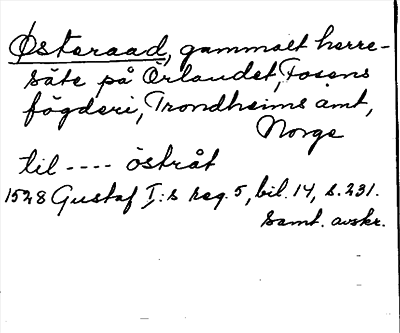 Østeraad, gammalt herre-
säte på Ørlandet, Fosens
fögderi, Trondheims amt,
Norge
til ---- östråt
1528 Gustaf I:s reg. 5, bil. 14, s. 231.
Samt. avskr.